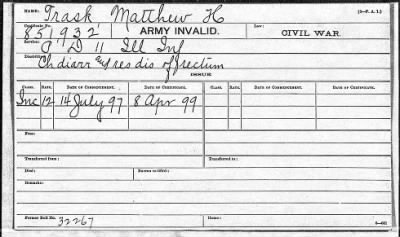 NAME: Trask Matthew H (3-P. A. I.)
Certificate No. 851932 ARMY INVALID. Law: CIVIL WAR.
Service: "D" 11 Ill Inf
Disability: Ch diarr & res dis of rectum
ISSUE
CLASS. RATE. DATE OF COMMENCEMENT. DATE OF CERTIFICATE. CLASS. RATE. DATE OF COMMENCEMENT. DATE OF CERTIFICATE.
Inc 12 14 July 97 8 Apr 99
From:
Transferred from: Transferred to:
Died: Bureau notified:
Remarks:
Former Roll No. 32267 Home: